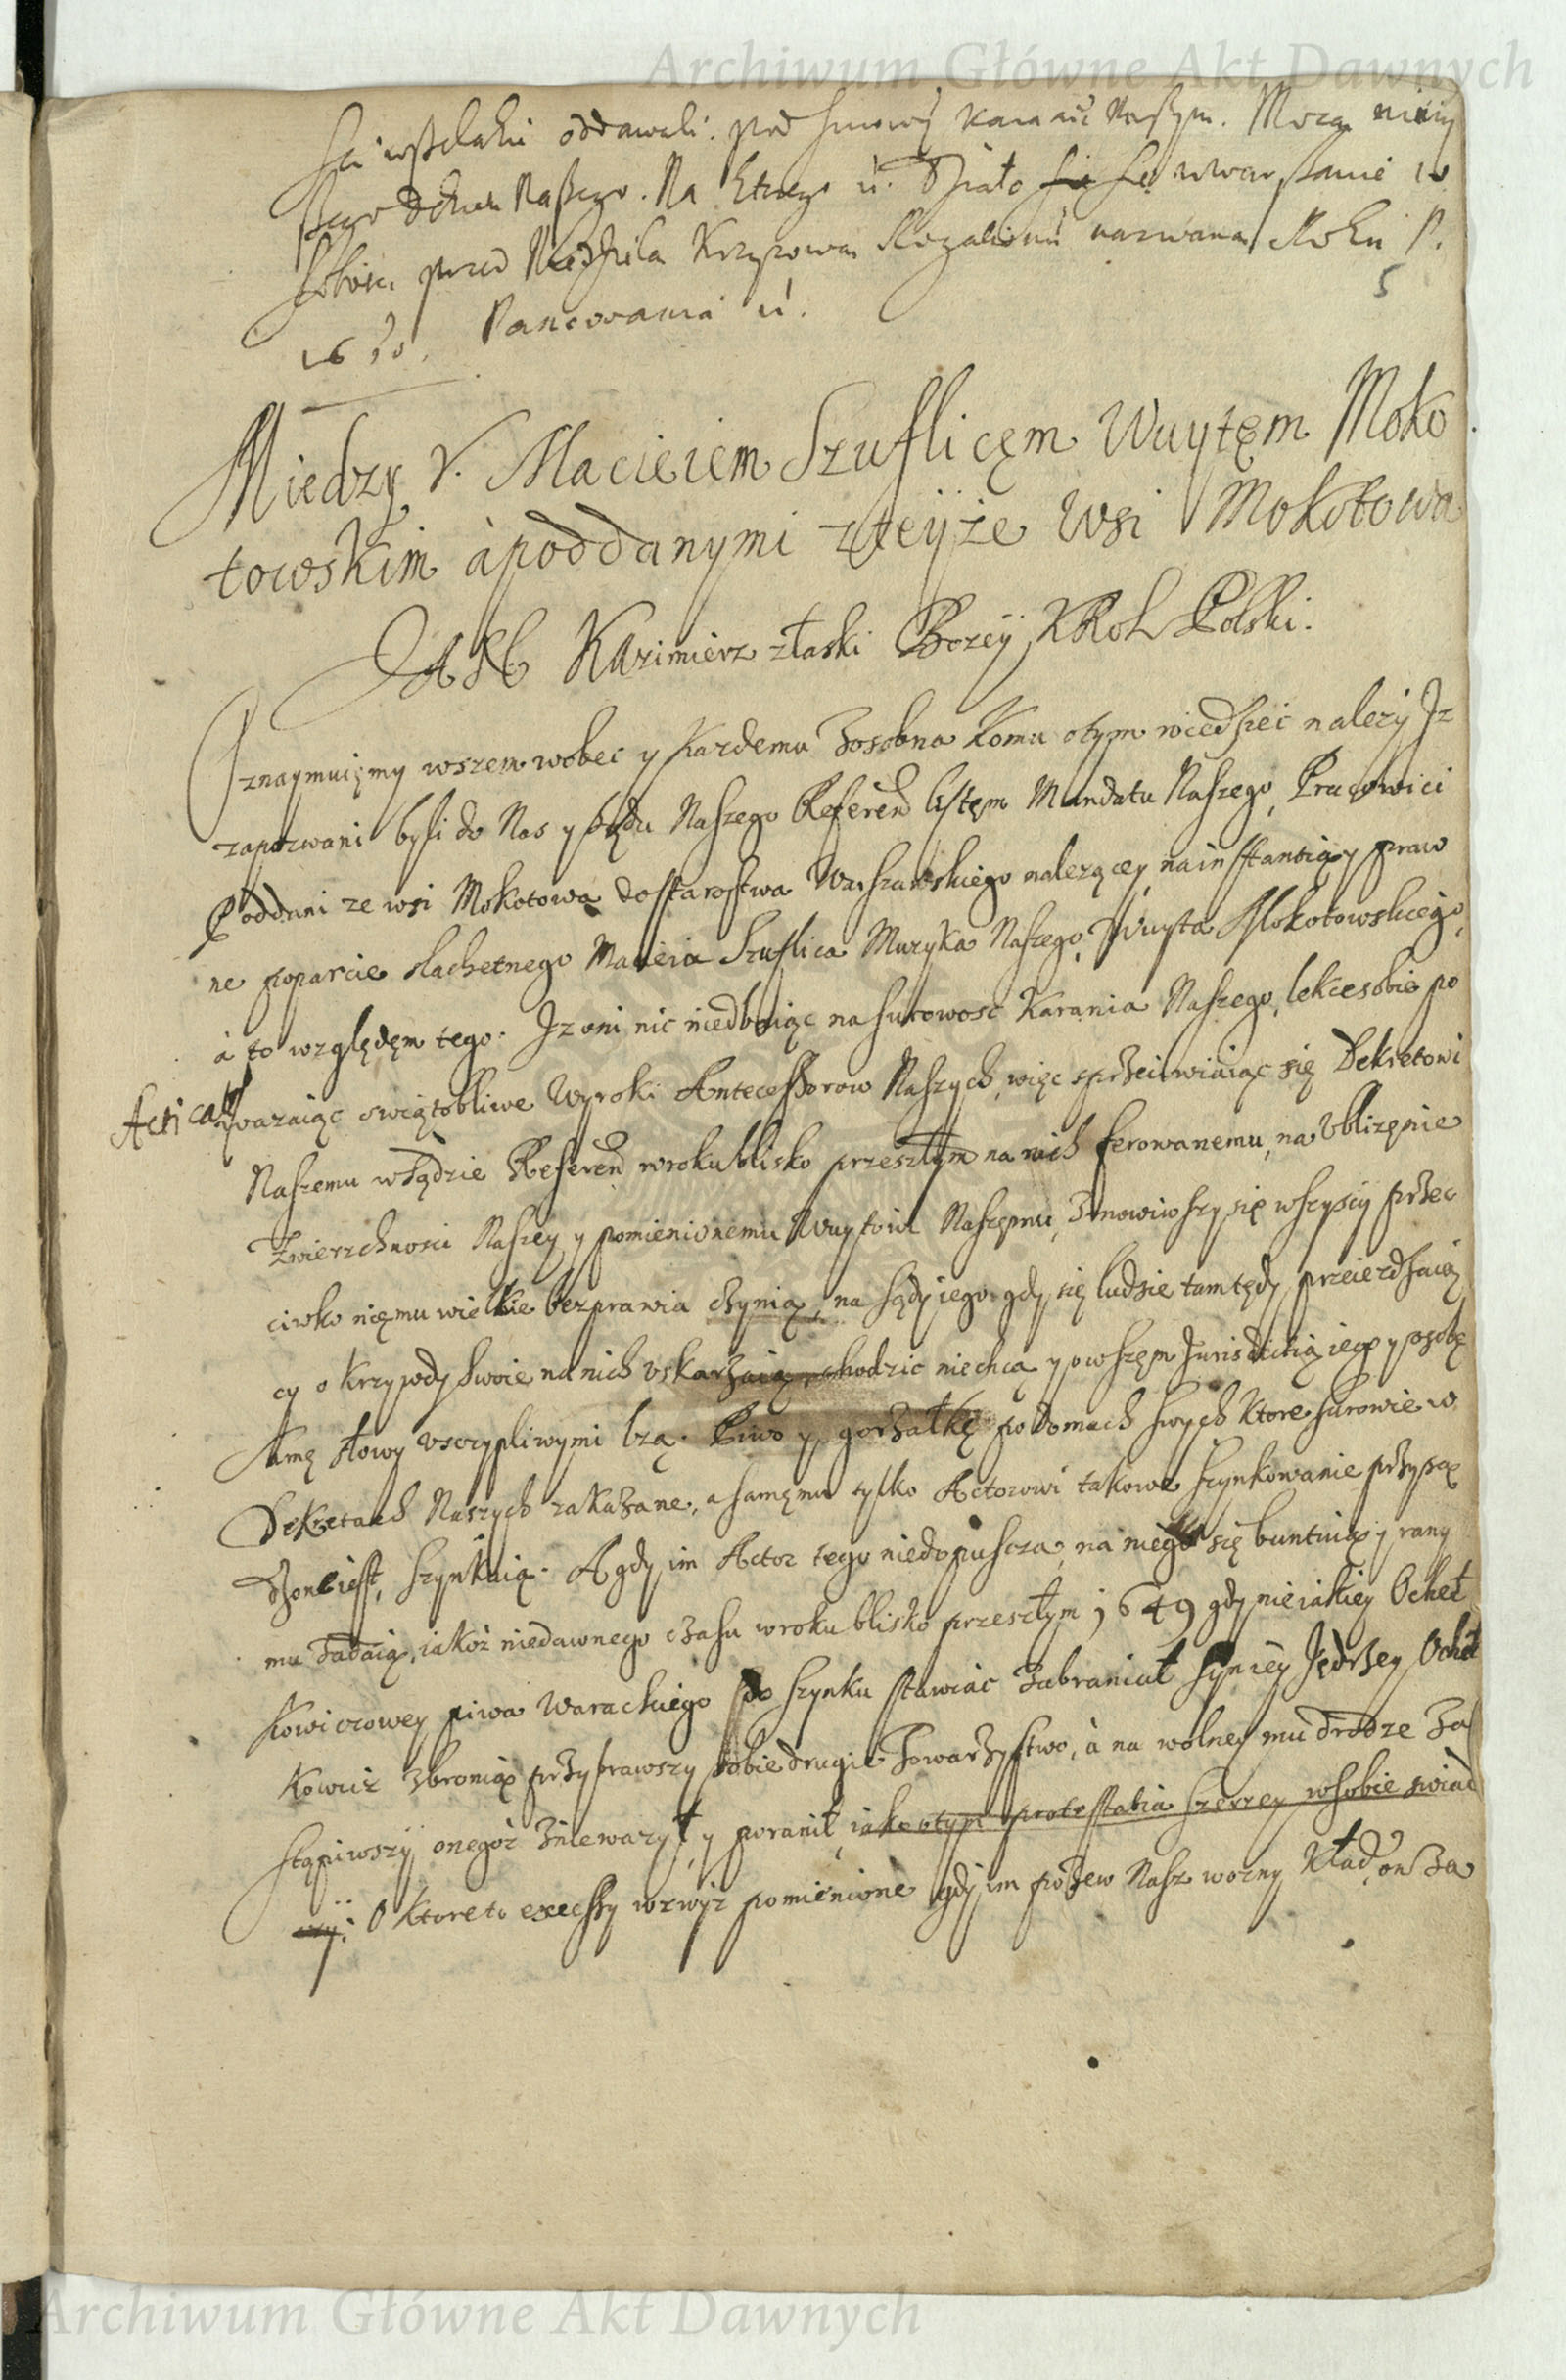 Archiwum Główne Akt Dawnych
oddawali. pod surowym karanie Naszym. Mocą
Naszego. Na Ktorego u. Działo się w Warszawie w
Sobotę przed Niedzielą Krzyzową Rogationum nazwaną Roku P.
1650. Panowania u.
5
Miedzy V. Macieiem Szuflicęm Wuytęm Moko
towskim à poddanymi zteyże Wsi Mokotowa
JAN Kazimierz złaski Bozey KRoL Polski.
Oznaymuięmy wszem wobec y Kazdemu Zosobna Komu otym wiedzieć nalezy Jz
zapozwani byli do Nas y Sądu Naszego Referen listęm Mandatu Naszego, Pracowici
Poddani ze wsi Mokotowa do starostwa Warszawskiego nalezącey, na instantią y praw
ne poparcie slachetnego Macieia Szuflica Muzyka Naszego, Wuyta Mokotowskiego,
à to względęm tego. Jz oni nic niedbaiąc na surowosc Karania Naszego, lekce sobie po
Acticat
wazaiąc swiątobliwe Wyroki Antecessorow Naszych, więc sprzeciwiaiąc się Dekretowi
Naszemu w Sądzie Referen w roku blisko przeszłym na nich ferowanemu, na Vblizęnie
Zwierzchnosci Naszey y pomienionemu Wuytowi Naszęmu, Zmowiwszy się wszyscy przec
ciwko nięmu wielkie bezprawia czynią, na sądy iego gdy się ludzie tamtędy przeiezdzaią
cy o krzywdy swoie na nich vskarzaią, chodzic niechcą y owszęm Jurisdictią iego y osobę
samę słowy vsczypliwymi lzą. Piwo y gorzałkę po domach swych Ktore surowie w
Dekretach Naszych zakazane, a samęmu tylko Actorowi takowe szynkowanie przysą
dzone iest, szynkuią. A gdy im Actor tego niedopuscza, na niego się buntuią y rany
mu zadaią, iakoż niedawnego czasu w roku blisko przeszłym 1649 gdy nieiakiey Ochet
Kowiczowey piwa Warackiego do szynku stawiac Zabraniał, syn iey Jędrzey Ochet
Kowicz Zbronią przybrawszy sobie drugie Towarzystwo, à na wolney mu drodze Za
stąpiwszy onegóz Zniewazył, y poranił, iako o tym protestatia szerzey w sobie swiad
czy: O ktore to excessy wzwyz pomienione gdy im pozew Nasz wozny kład, on Za
Archiwum Główne Akt Dawnych